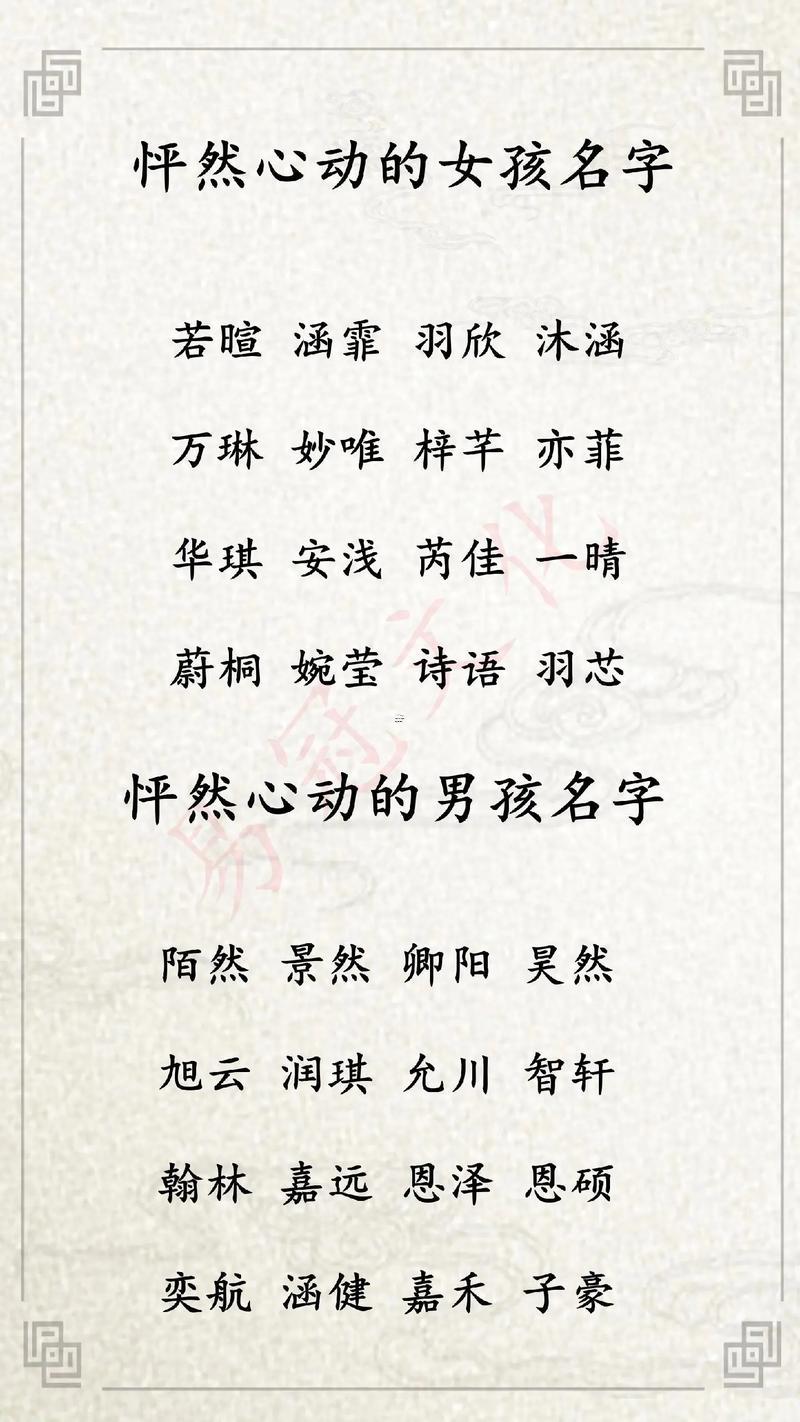 怦然心动的女孩名字
若暄 涵霏 羽欣 沐涵
万琳 妙唯 梓芊 亦菲
华琪 安浅 芮佳 一晴
蔚桐 婉莹 诗语 羽芯
易冠文化
怦然心动的男孩名字
陌然 景然 卿阳 昊然
旭云 润琪 允川 智轩
翰林 嘉远 恩泽 恩硕
奕航 涵健 嘉禾 子豪